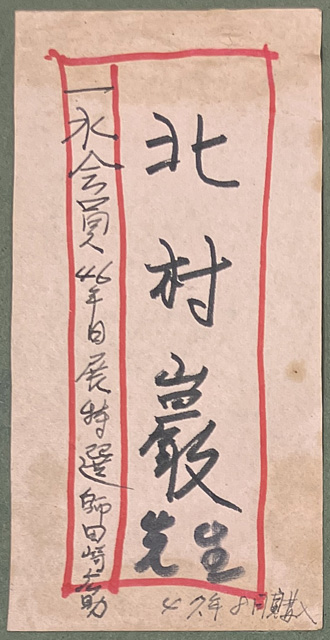 北村巖先生
一水会員 46年日展特選 師田崎広助
47年8月購入